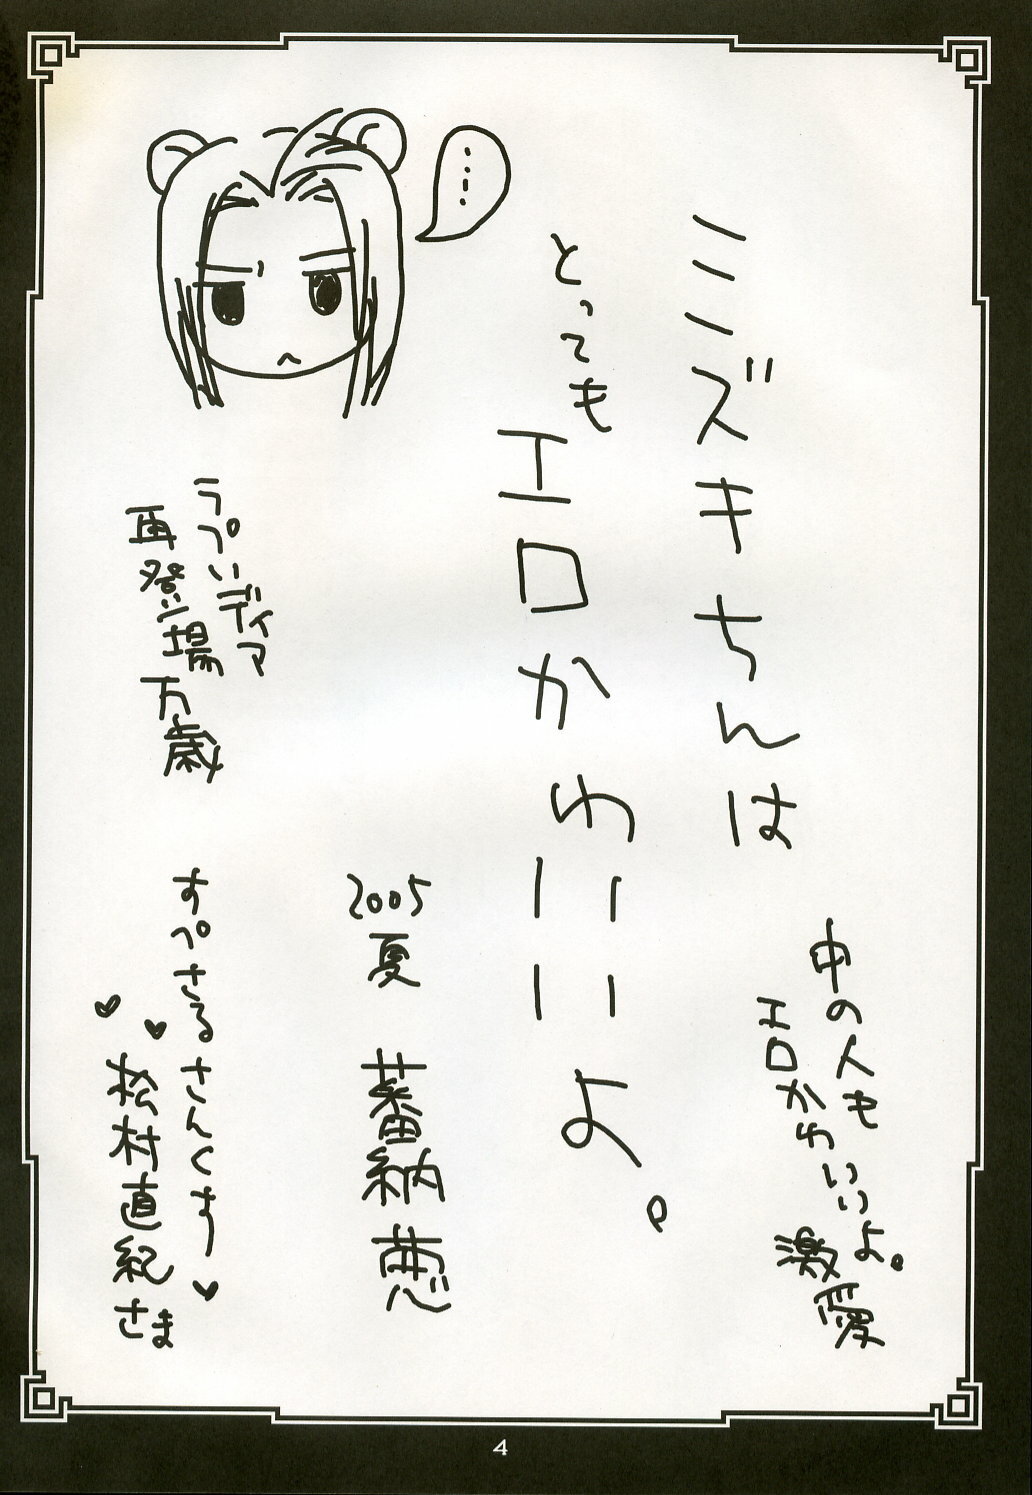 ミズキちんは
とっても
エロかわいいよ。
中の人も
エロかわいいよ。
激愛
…
2005
夏
蕃納葱
ラプいディア
再登場
万歳
すぺさるさんくすー♥
♥♥松村直紀さま
4